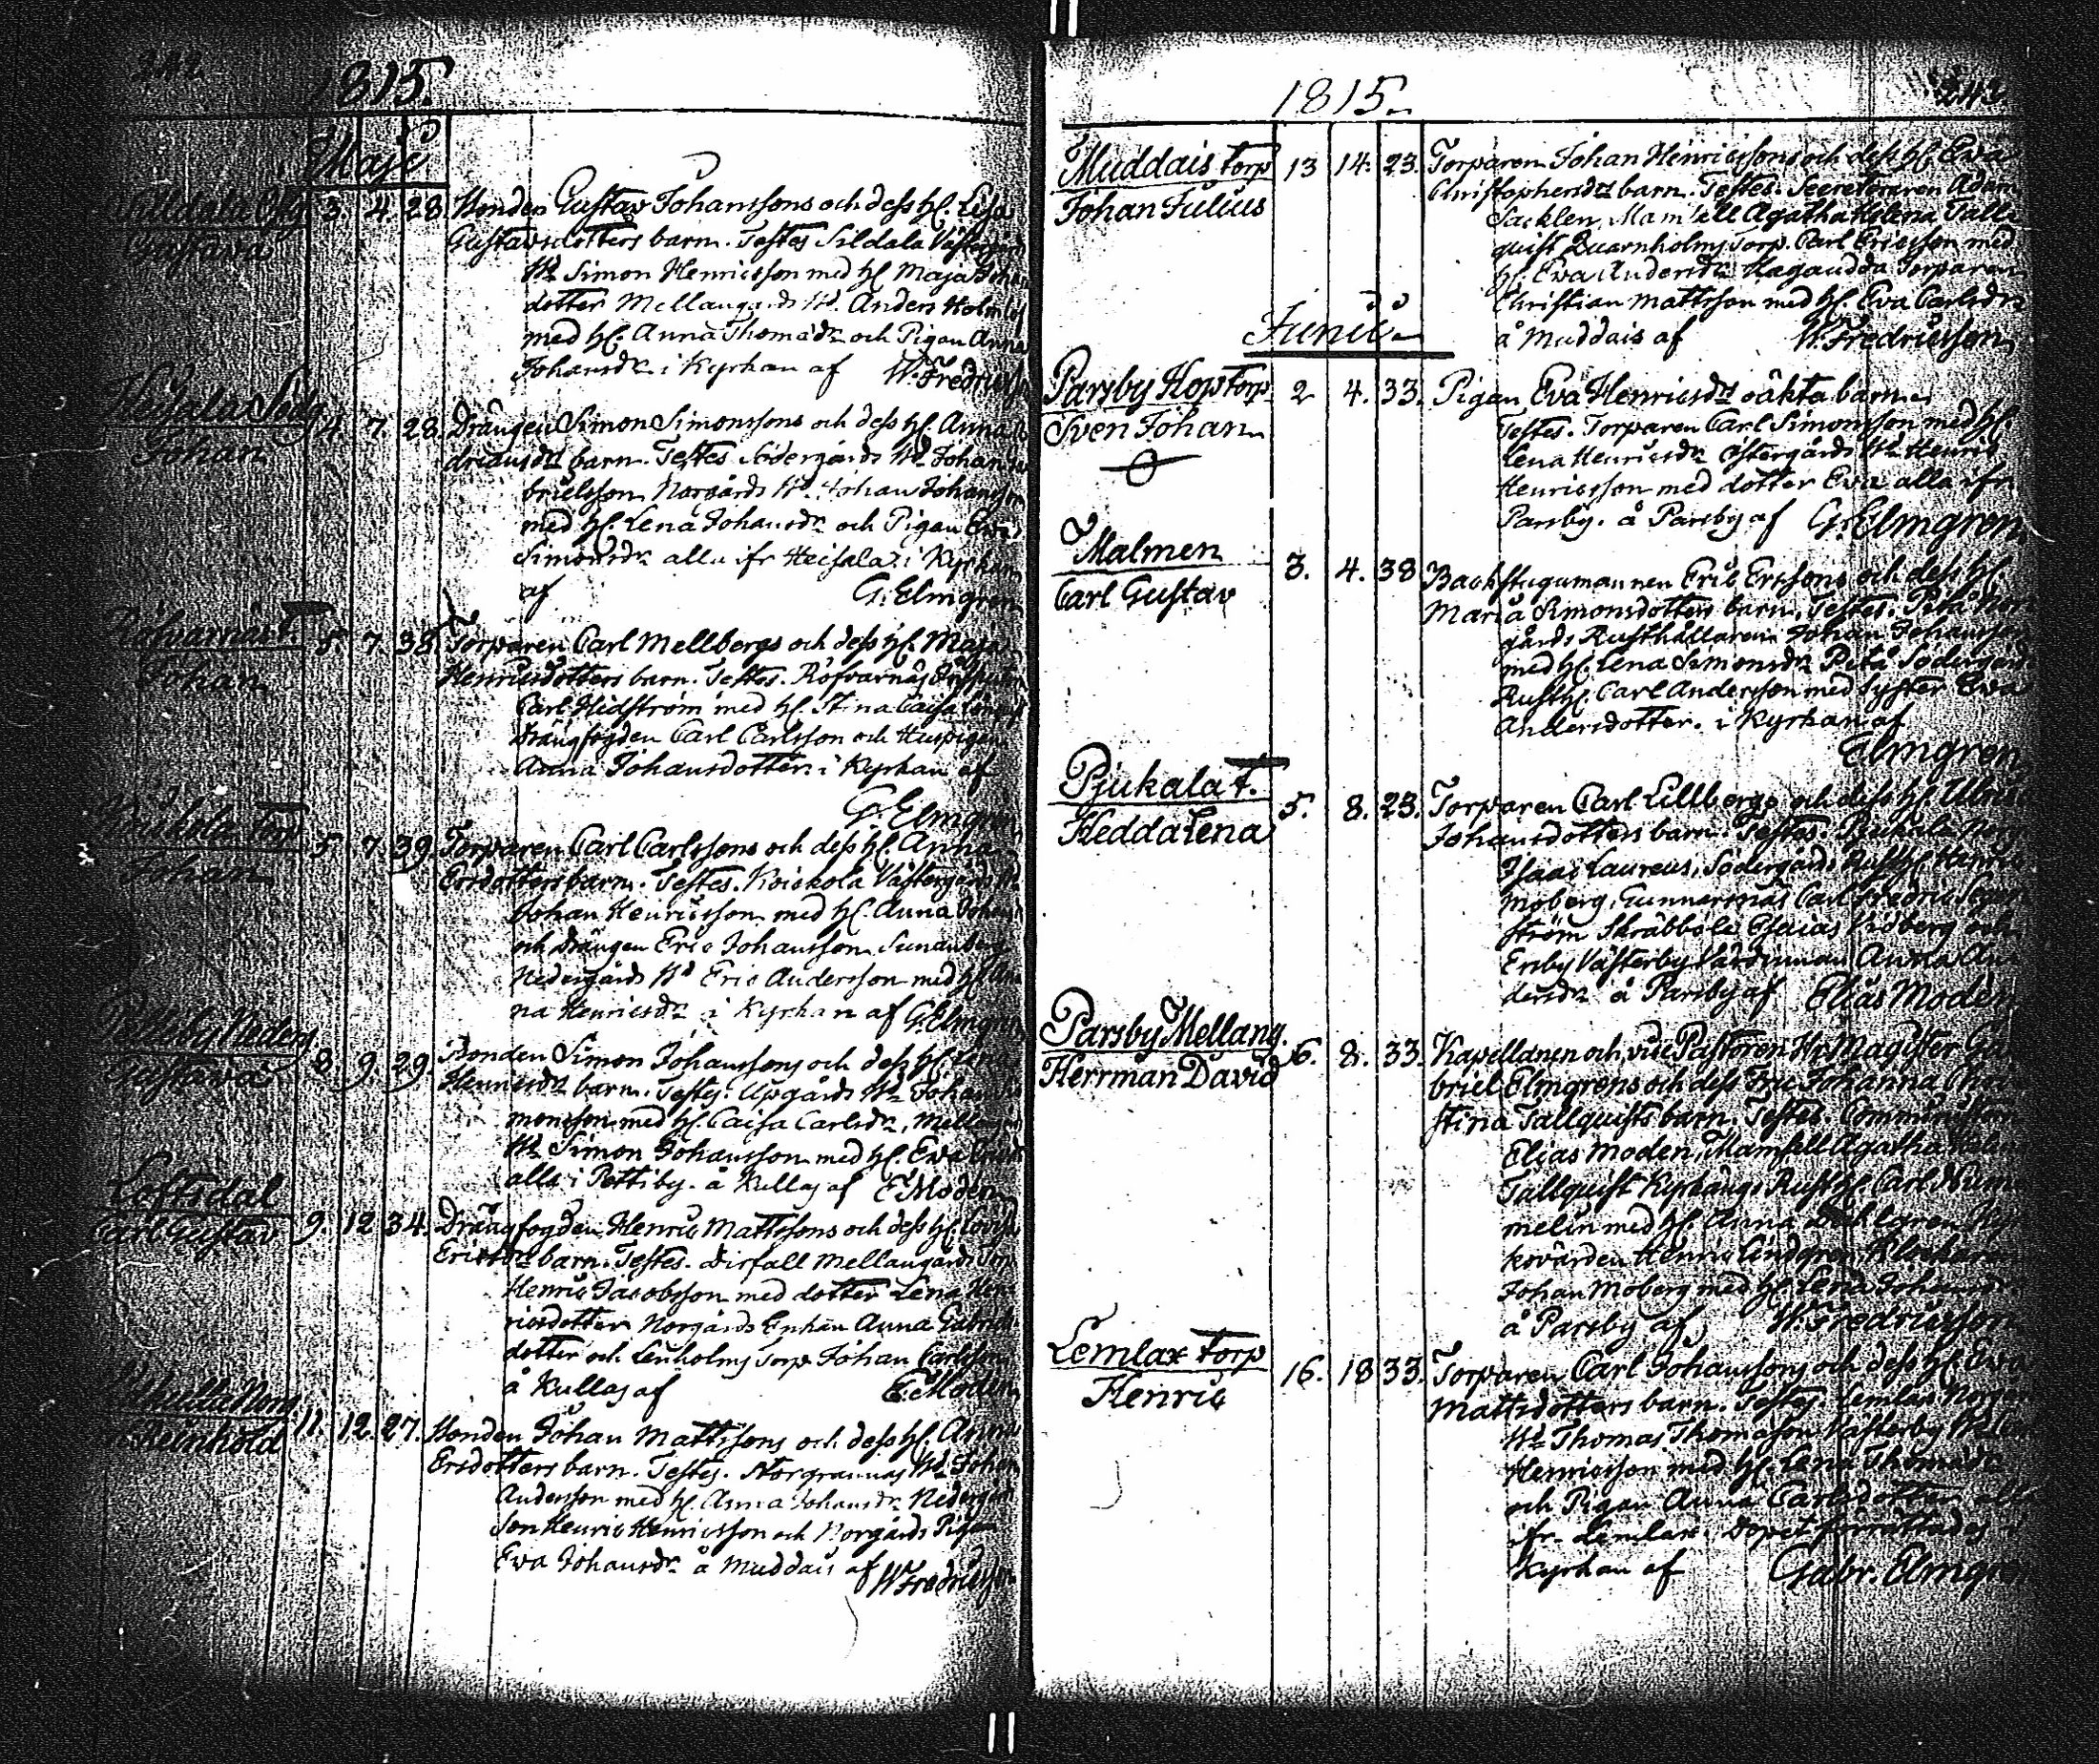 242
1815.
Maje
Sildala
3. 4. 28. Bonden Gustav Johanssons och dess H. Lisa
Gustava
Gustavsdotters barn. Testes Sildala
Bd. Simon Henricsson med H. Maja
dotter Mellangårds Bd. Anders
med H. Anna Thomasdr och Pigan Anna
Johansdr. i Kyrkan af W. Fredricsson
4. 7. 28. Drängen Simon Simonssons och dess H. Anna
Johan
barn. Testes Södergårds Bd. Johan
brielsson Norgårds Bd. Johan Johansson
med H. Lena Johansdr och Pigan Eva
Simonsdr alla ifr Heisala i Kyrkan
af G. Elmgren
Röfvarnäs t.
5. 7. 38. Torparen Carl Mellbergs och dess H. Maja
Johan
Henricsdotters barn. Testes. Röfvarnäs
Carl Hidström med H. Stina Caisa
Drängfogden Carl Carlsson och Huspigan
Anna Johansdotter i Kyrkan af
G. Elmgren
torp
5. 7. 39. Torparen Carl Carlssons och dess H. Anna
Johan
Ersdotters barn. Testes. Koickola Västergårds Bd.
Johan Henricsson med H. Anna
och Drängen Eric Johansson
Nedergårds Bd Eric Andersson med H. An
na Henricsdr i Kyrkan af G. Elmgren
Pettiby Nederg
8. 9. 29. Bonden Simon Johanssons och dess H.
Gustava
Henricsdr barn. Testes. Upgårds Bd. Johan Si
monsson med H. Caisa Carlsdr,
Bd. Simon Johansson med H. Eva
alla i Pettiby. å Kullas af E. Moden
Loftsdal
9. 12. 34. Drängfogden Henric Mattssons och dess H. Lovisa
Carl Gustav
Ericsdr barn. Testes. Dirfall Mellangårds
Henric Jacobsson med dotter Lena Hen
ricsdotter Norgårds Enkan Anna Gabriels
dotter och Lenholms Torp. Johan Carlsson
å Kullas af E. Moden
11. 12. 27. Bonden Johan Mattssons och dess H. Anna
Reinhold
Ersdotters barn. Testes. Storgrannas Bd. Johan
Andersson med H. Anna Johansdr
Son Henric Henricsson och Norgårds Pigan
Eva Johansdr å Muddais af W. Fredricsson
243
1815.
Muddais torp
13 14. 23. Torparen Johan Henricssons och dess H. Eva
Johan Julius
Christophersdrs barn. Testes. Secreteraren Adam
Sacklen, Mamsell Agatha Helena Tall
quist Quarnholms Torp. Carl Ericsson med
H. Eva Andersdr Hagaudda Torparen
Christian Mattsson med H. Eva Carlsdr
å Muddais af W. Fredricsson
Junii
Parsby Kop torp
2 4. 33. Pigan Eva Henricsdrs oäkta barn
Sven Johan
Testes. Torparen Carl Simonsson med H.
Lena Henricsdr Östergårds Bd. Henric
Henricsson med dotter Eva alla ifr
Parsby. å Parsby af G. Elmgren
Malmen
3. 4. 38 Backstugumannen Eric Erssons och dess H.
Carl Gustav
Maria Simonsdotters barn. Testes. Pitå Nor
gårds Rusthållaren Johan Johansson
med H. Lena Simonsdr Pitå Södergårds
Rusth. Carl Andersson med Syster Eva
Andersdotter. i Kyrkan af
Elmgren
Pjukala t.
5. 8. 23. Torparen Carl Lillbergs och dess H. Ulrica
Hedda Lena
Johansdotters barn. Testes. Pjukala
Isaac Laureus, Södergårds Rusth. Henric
Moberg, Gunnarsnäs Carl Fredric
ström Skräbböle Esaias Widberg och
Ersby Västerby Värdinnan Anna An
dersdr å Parsby af Elias Moden
Parsby Mellang.
6. 8. 33. Kapellanen och vice Pastoren Hr Magister Ga
Herrman David
briel Elmgrens och dess Fru Johanna Chri
stina Tallquists barn. Testes.
Elias Moden, Mamsell Agatha Helena
Tallquist Kyrkängs Rusth. Carl
melin med H. Anna
kovärden Henric Lindgren Klockaren
Johan Moberg med H. Lena Johansdr.
å Parsby af W. Fredricsson
Lemlax torp
16. 18 33. Torparen Carl Johanssons och dess H. Eva
Henric
Mattsdotters barn. Testes. Lemlax
Bd. Thomas Thomasson Västerby
Henricsson med H. Lena Thomasdr
och Pigan Anna Carlsdotter alla
ifr. Lemlax. Dopet förrättades i
Kyrkan af Gabr. Elmgren